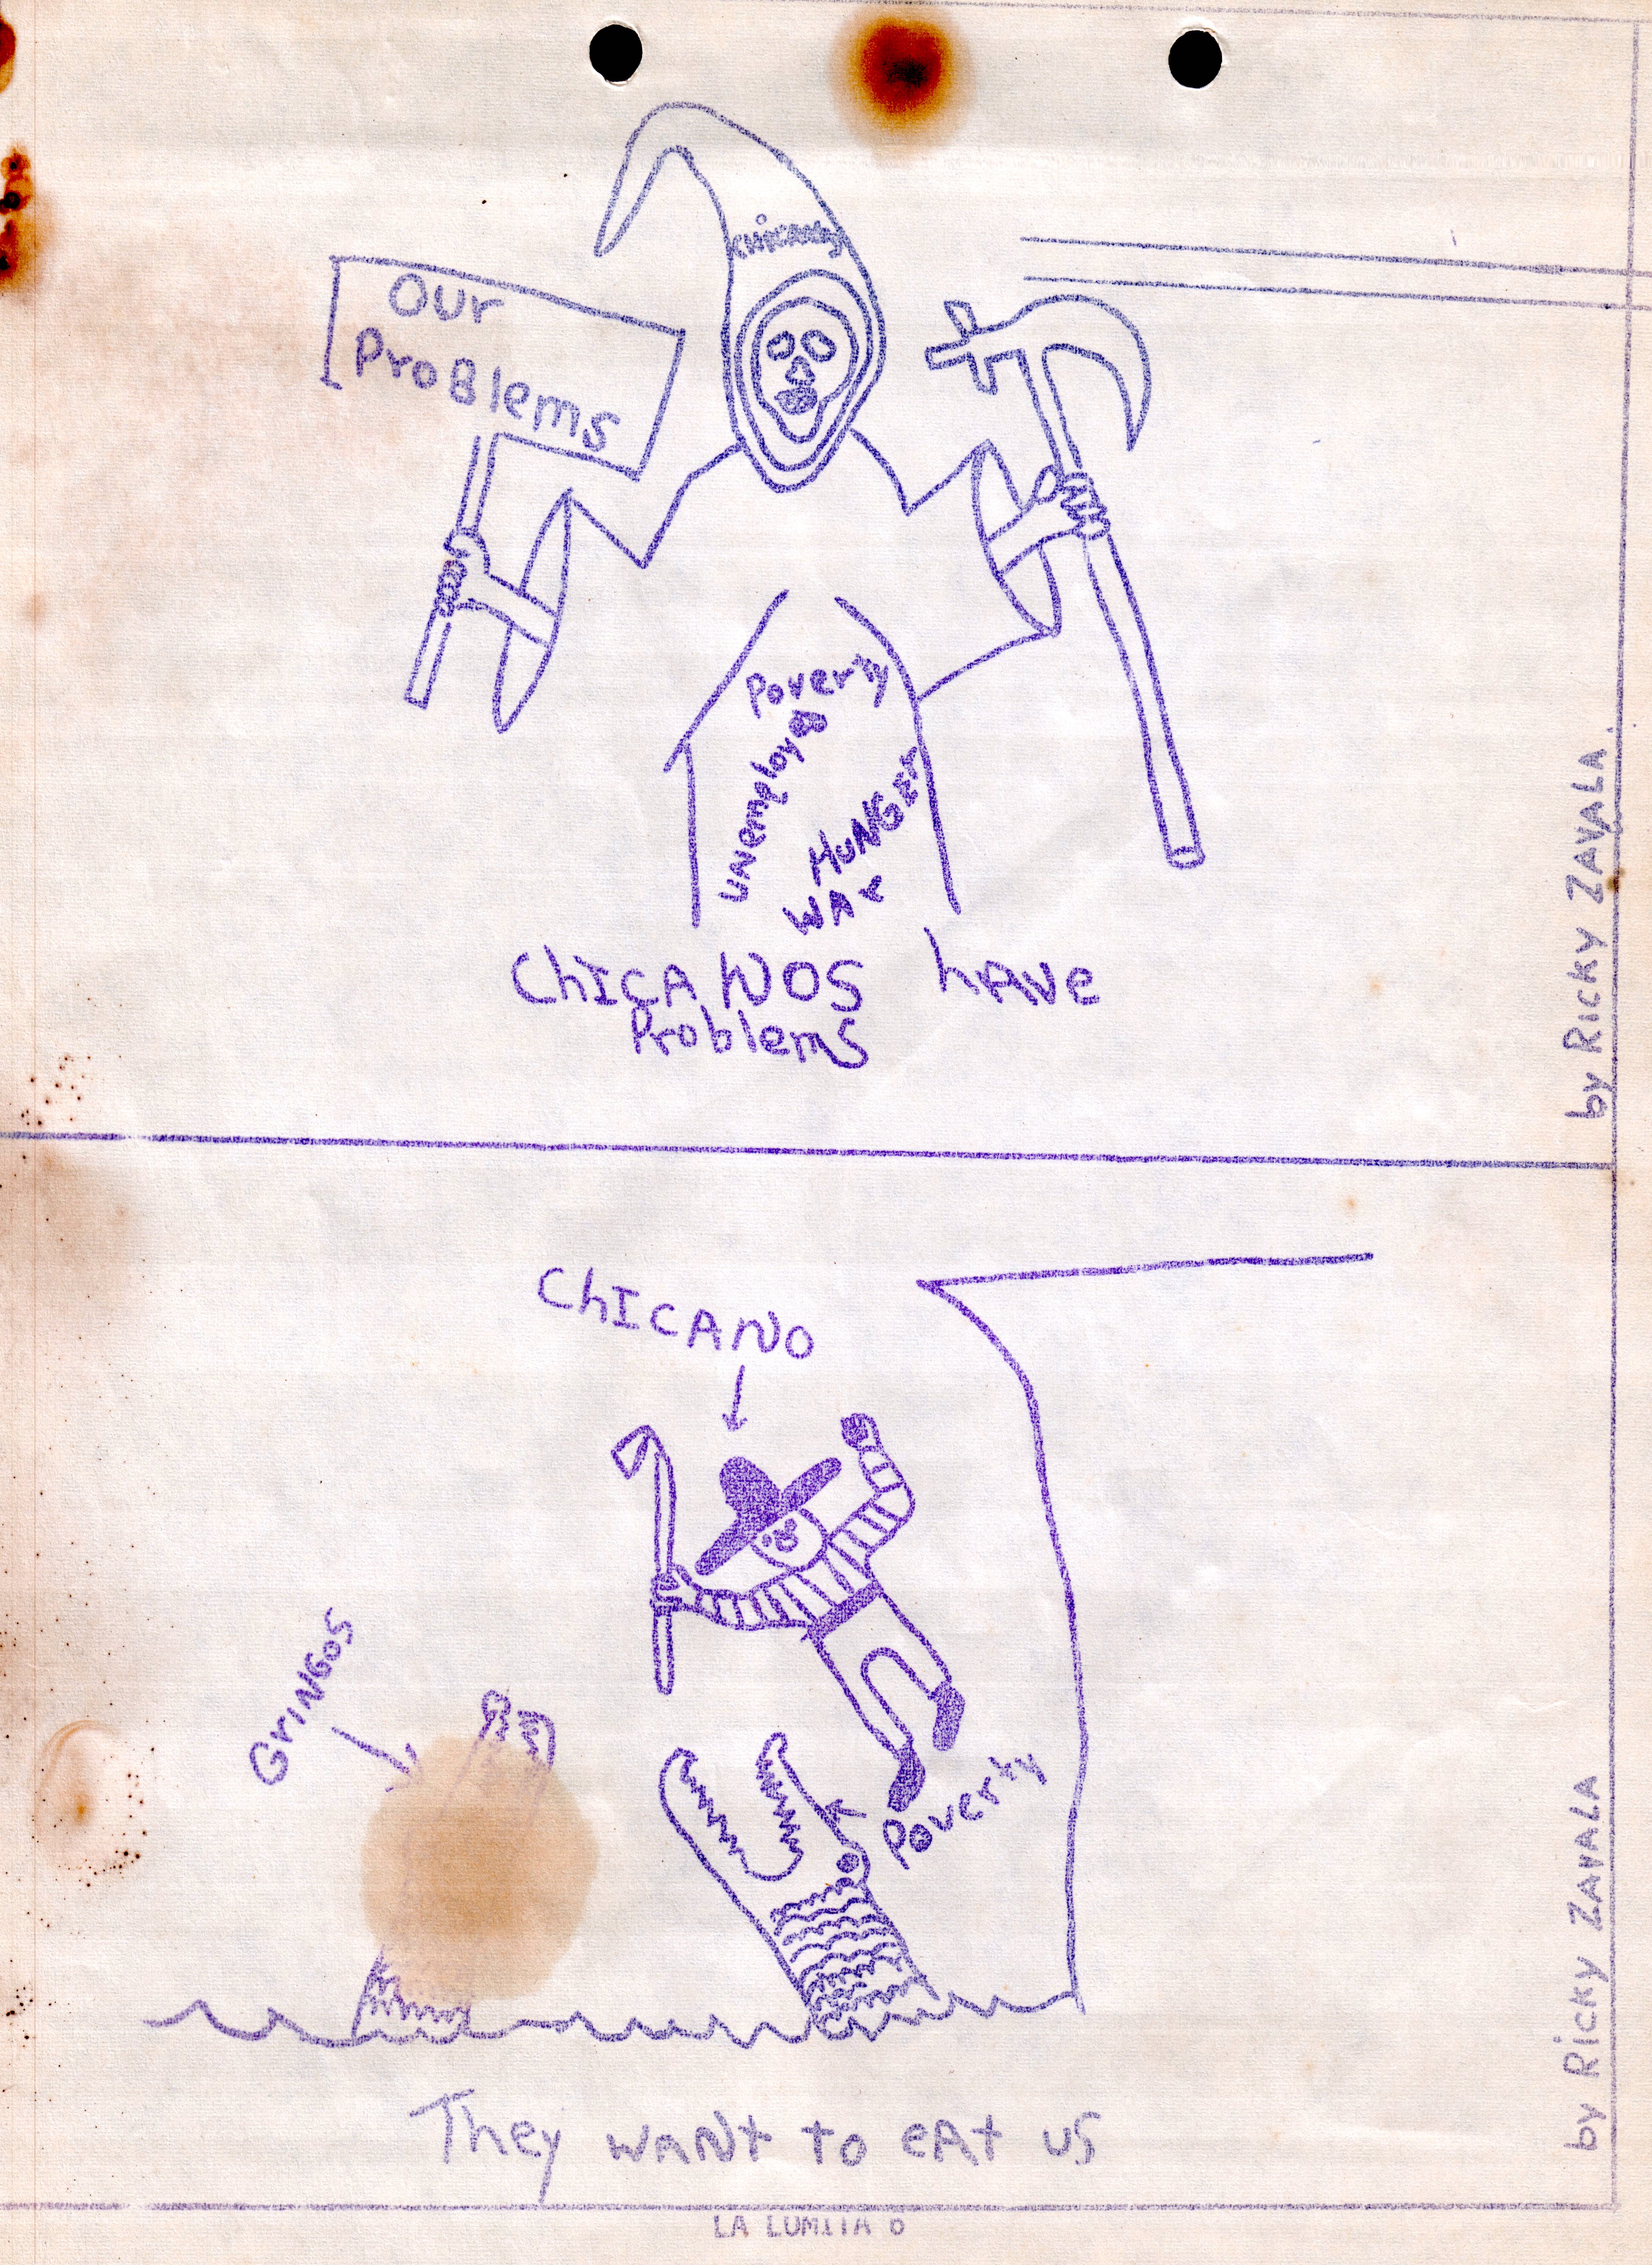 Chicanos
Our
Problems
Poverty
Unemploy
HUNGEr
WAr
ChICANOS hAVe
Problems
by RICKY ZAVALA
ChICANO
GrINGOS
Poverty
They wANt to eAt us
by RICKY ZAVALA
LA LUMITA 6